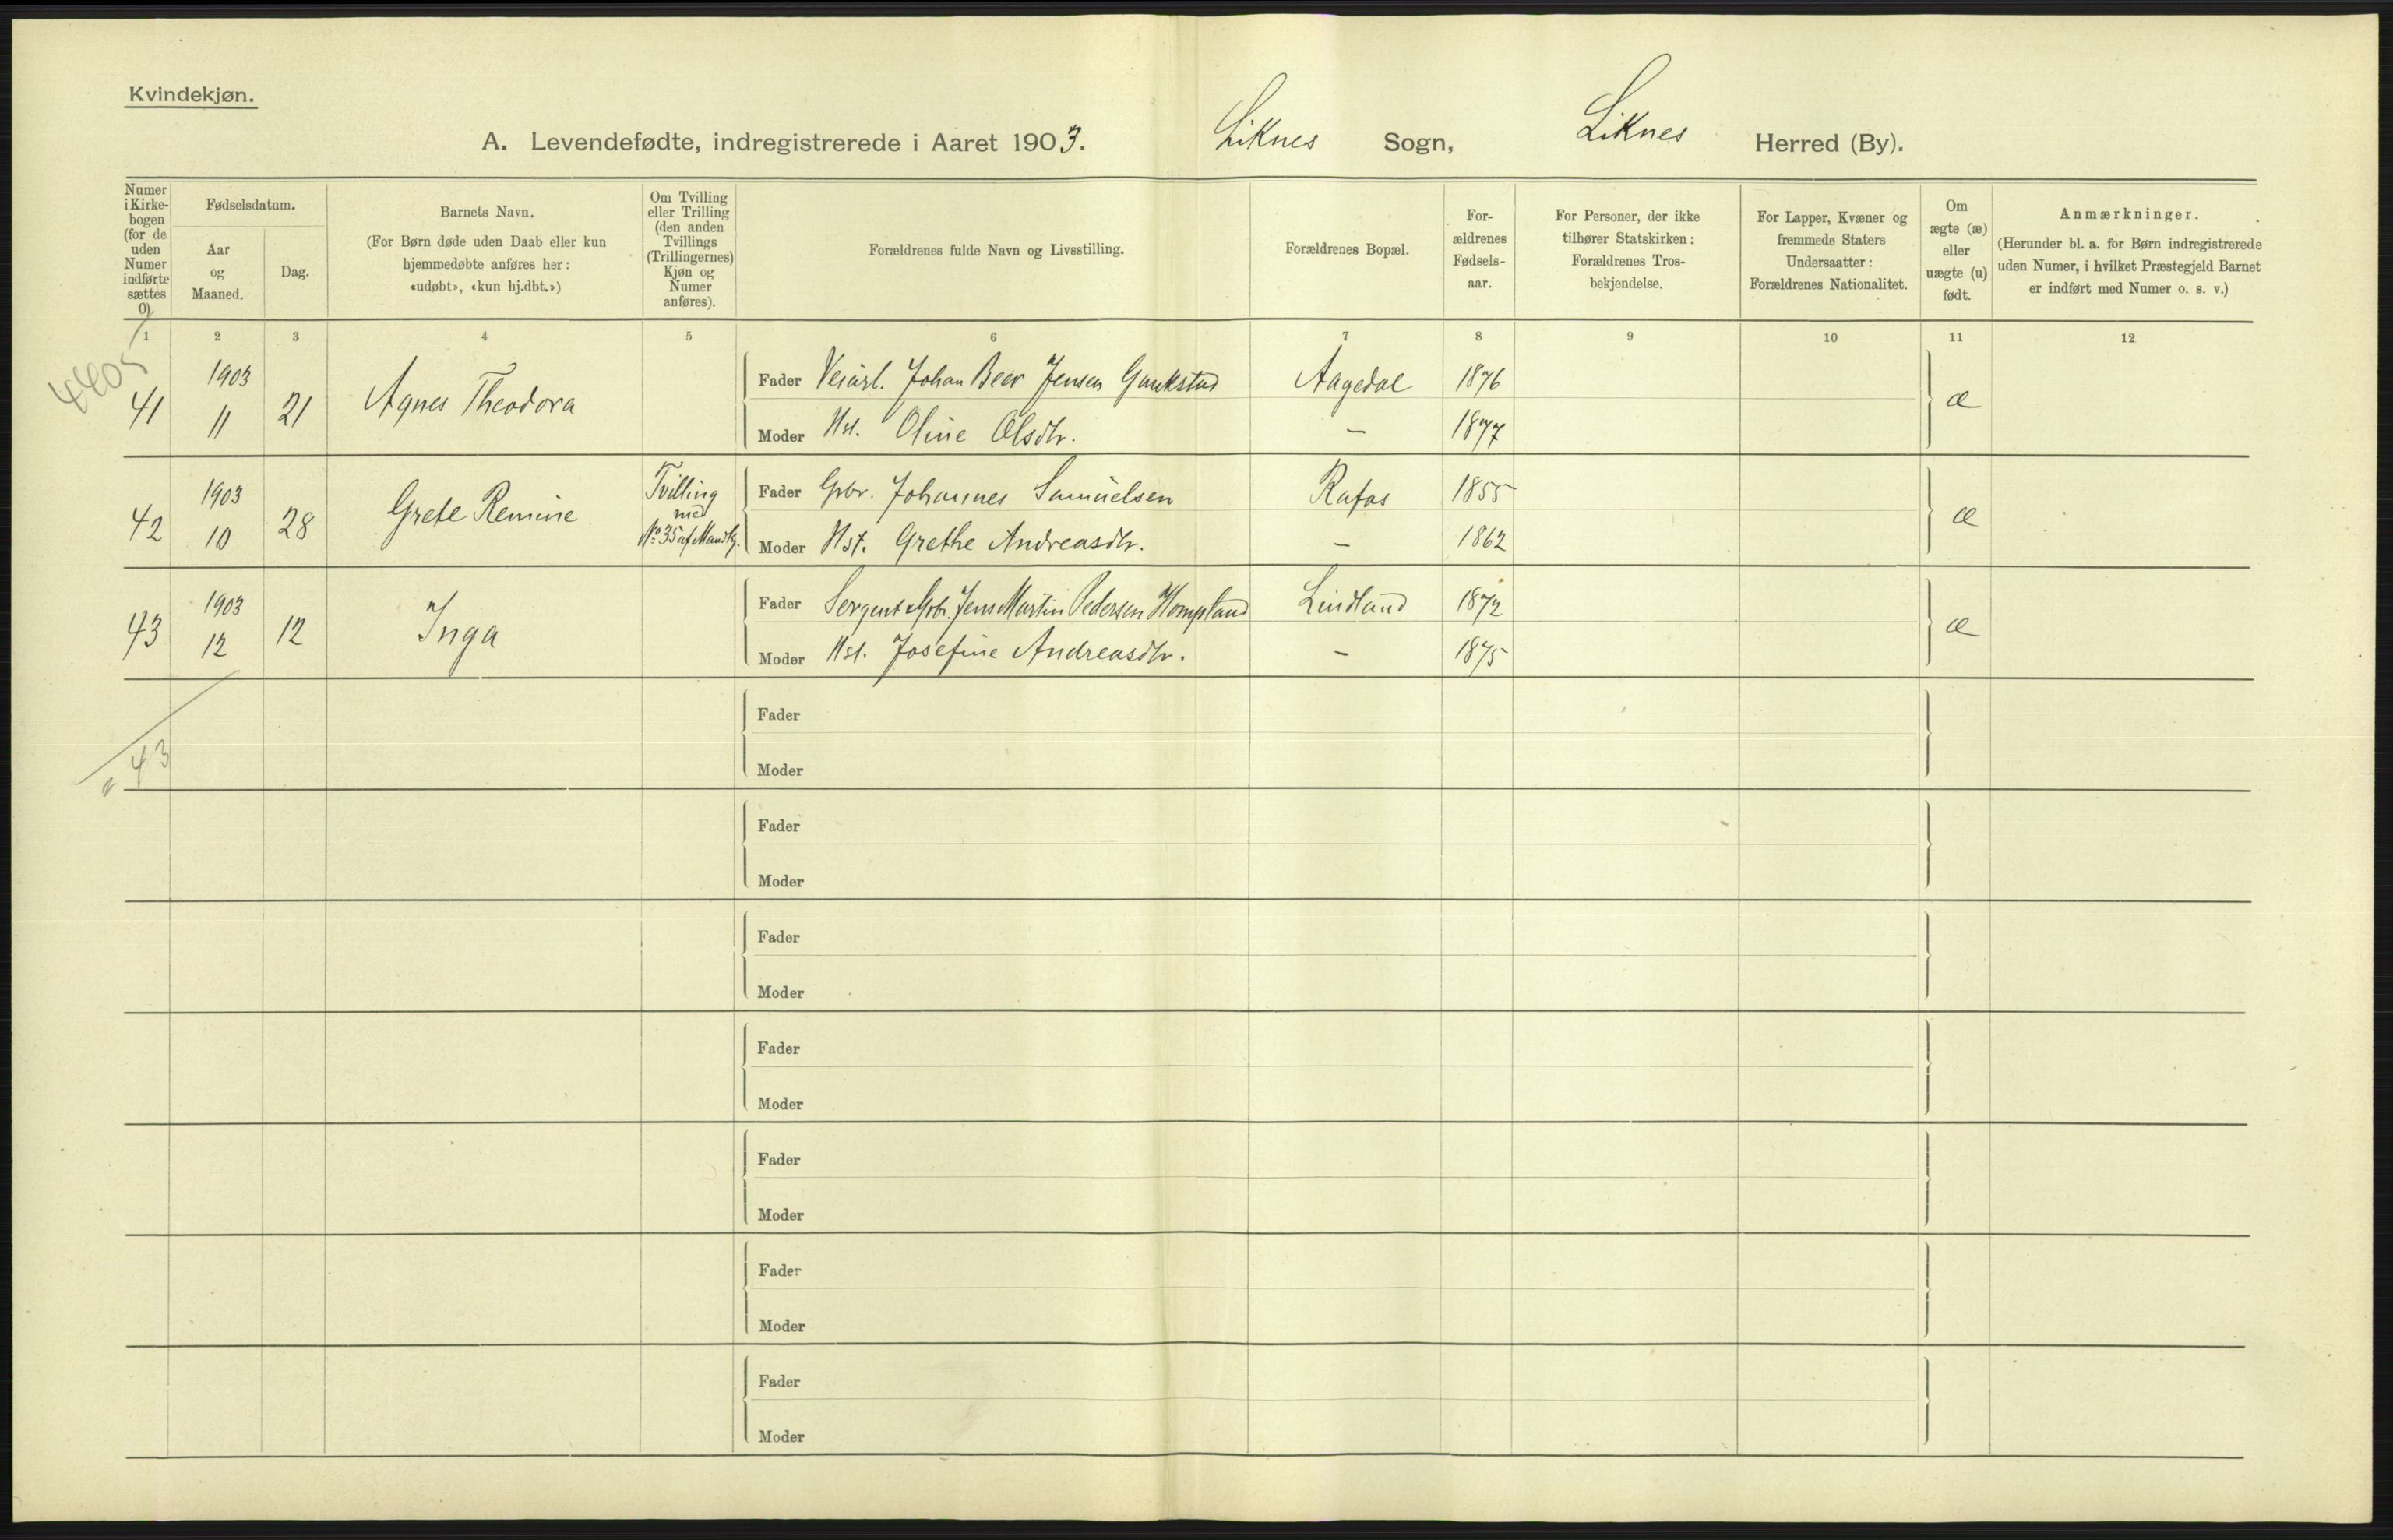 Kvindekjøn.
A. Levendefødte, indregistrerede i Aaret 1903. Liknes Sogn, Liknes Herred (By).
Numer i Kirke-bogen (for de uden Numer indførte sættes 0).
Fødselsdatum.
Aar og Maaned.
Dag.
Barnets Navn.
(For Børn døde uden Daab eller kun
hjemmedøbte anføres her:
«udøbt», «kun hj.dbt.»)
Om Tvilling
eller Trilling
(den anden
Tvillings
(Trillingernes)
Kjøn og
Numer
anføres).
Forældrenes fulde Navn og Livsstilling.
Forældrenes Bopæl.
For-
ældrenes
Fødsels-
aar.
For Personer, der ikke
tilhører Statskirken:
Forældrenes Tros-
bekjendelse.
For Lapper, Kvæner og
fremmede Staters
Undersaatter:
Forældrenes Nationalitet.
Om
ægte (æ)
eller
uægte (u)
født.
Anmærkninger.
(Herunder bl. a. for Børn indregistrerede
uden Numer, i hvilket Præstegjeld Barnet
er indført med Numer o. s. v.)
1 2 3 4 5 6 7 8 9 10 11 12
4405
41 1903 11 21 Agnes Theodora
Fader Veiarb. Johan Beer Jensen Gaukstad Aagedal 1876
Moder Hst. Oline Olsdtr. — 1877
æ
42 1903 10 28 Grete Remine
Tvilling
med
No 35 af Mandkj.
Fader Gbr. Johannes Samuelsen Rafos 1855
Moder Hst. Grethe Andreasdtr. — 1862
æ
43 1903 12 12 Inga
Fader Sergent & Gbr. Jens Martin Pedersen Hompland Lindland 1872
Moder Hst. Josefine Andreasdtr. — 1875
æ
43
Fader
Moder
Fader
Moder
Fader
Moder
Fader
Moder
Fader
Moder
Fader
Moder
Fader
Moder